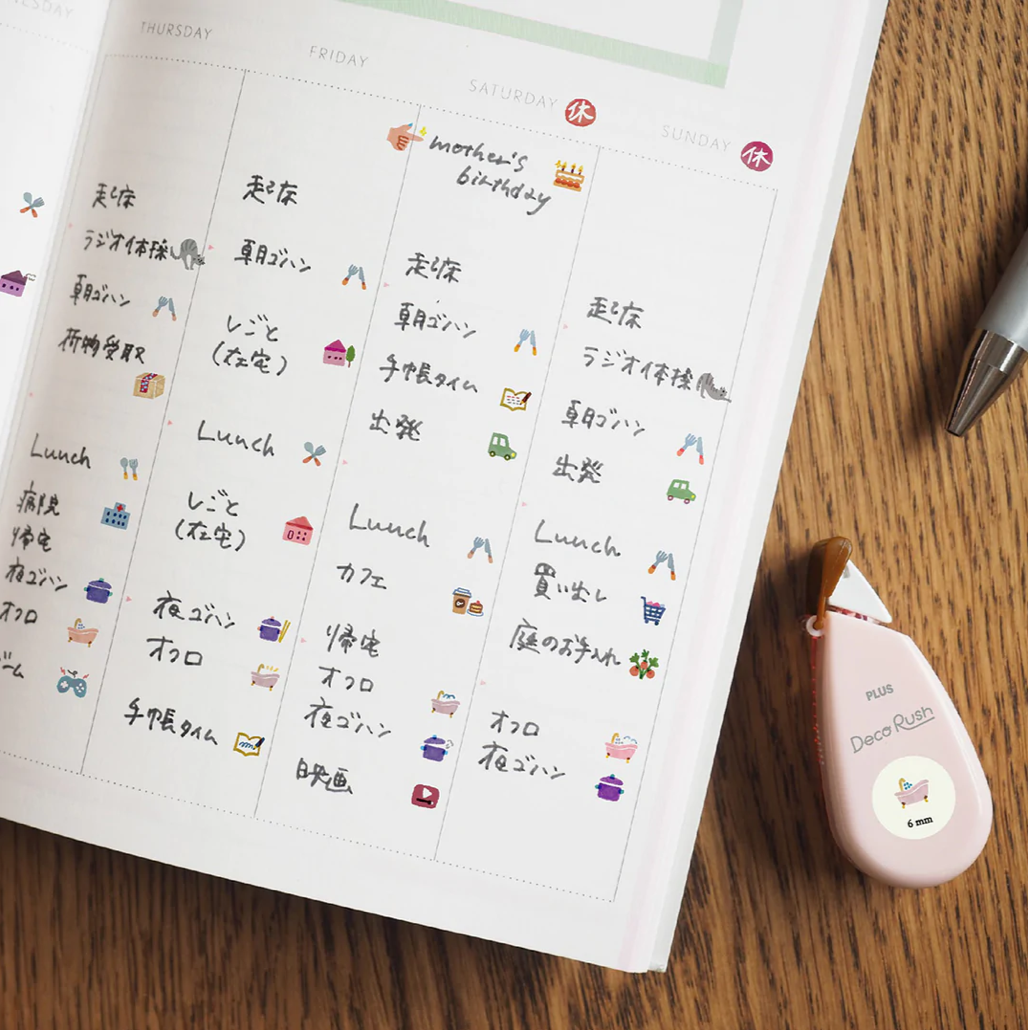 THURSDAY
起床
ラジオ体操
朝ゴハン
荷物受取
Lunch
病院
帰宅
夜ゴハン
オフロ
ーム
FRIDAY
起床
朝ゴハン
しごと
(在宅)
Lunch
しごと
(在宅)
夜ゴハン
オフロ
手帳タイム
SATURDAY 休
mother's
birthday
起床
朝ゴハン
手帳タイム
出発
Lunch
カフェ
帰宅
オフロ
夜ゴハン
映画
SUNDAY 休
起床
ラジオ体操
朝ゴハン
出発
Lunch
買い出し
庭のお手入れ
オフロ
夜ゴハン
PLUS
Deco Rush
6 mm